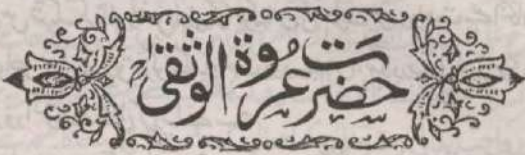 حضرت عروة الوثقیٰ